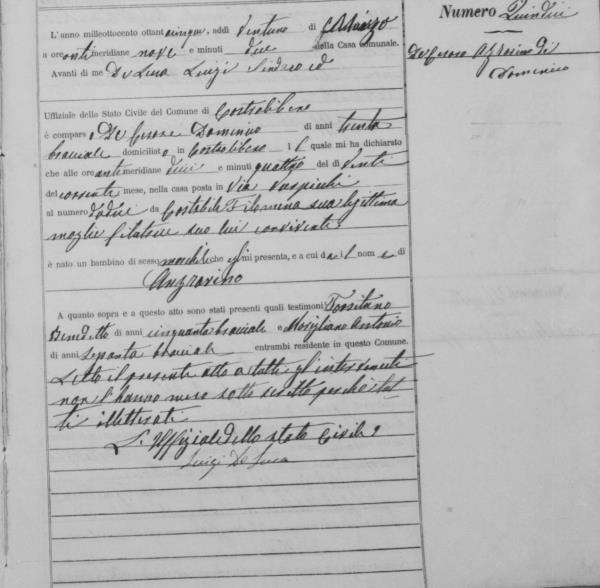 Numero Quindici
De Cesare Angrasino di
Domenico
L'anno milleottocento ottantacinque, addì ventuno di Marzo
a ore antimeridiane nove e minuti due nella Casa Comunale.
Avanti di me De Luca Luigi Sindaco ed
Uffiziale dello Stato Civile del Comune di
è comparso De Cesare Domenico di anni trenta
bracciale domiciliato in il quale mi ha dichiarato
che alle ore antimeridiane dieci e minuti quattro del dì venti
del corrente mese, nella casa posta in Via
al numero dodici da Costabile Filomena sua legittima
moglie filatrice seco lui convivente
è nato un bambino di sesso maschile che egli mi presenta, e a cui dà il nome di
A quanto sopra e a questo atto sono stati presenti quali testimoni
Benedetto di anni cinquanta bracciale e Antonio
di anni bracciale entrambi residente in questo Comune.
Letto il presente atto a tutti gl'intervenuti
non l'hanno meco sotto scritto perchè tut-
ti illetterati
L'Uffiziale dello Stato Civile
Luigi De Luca